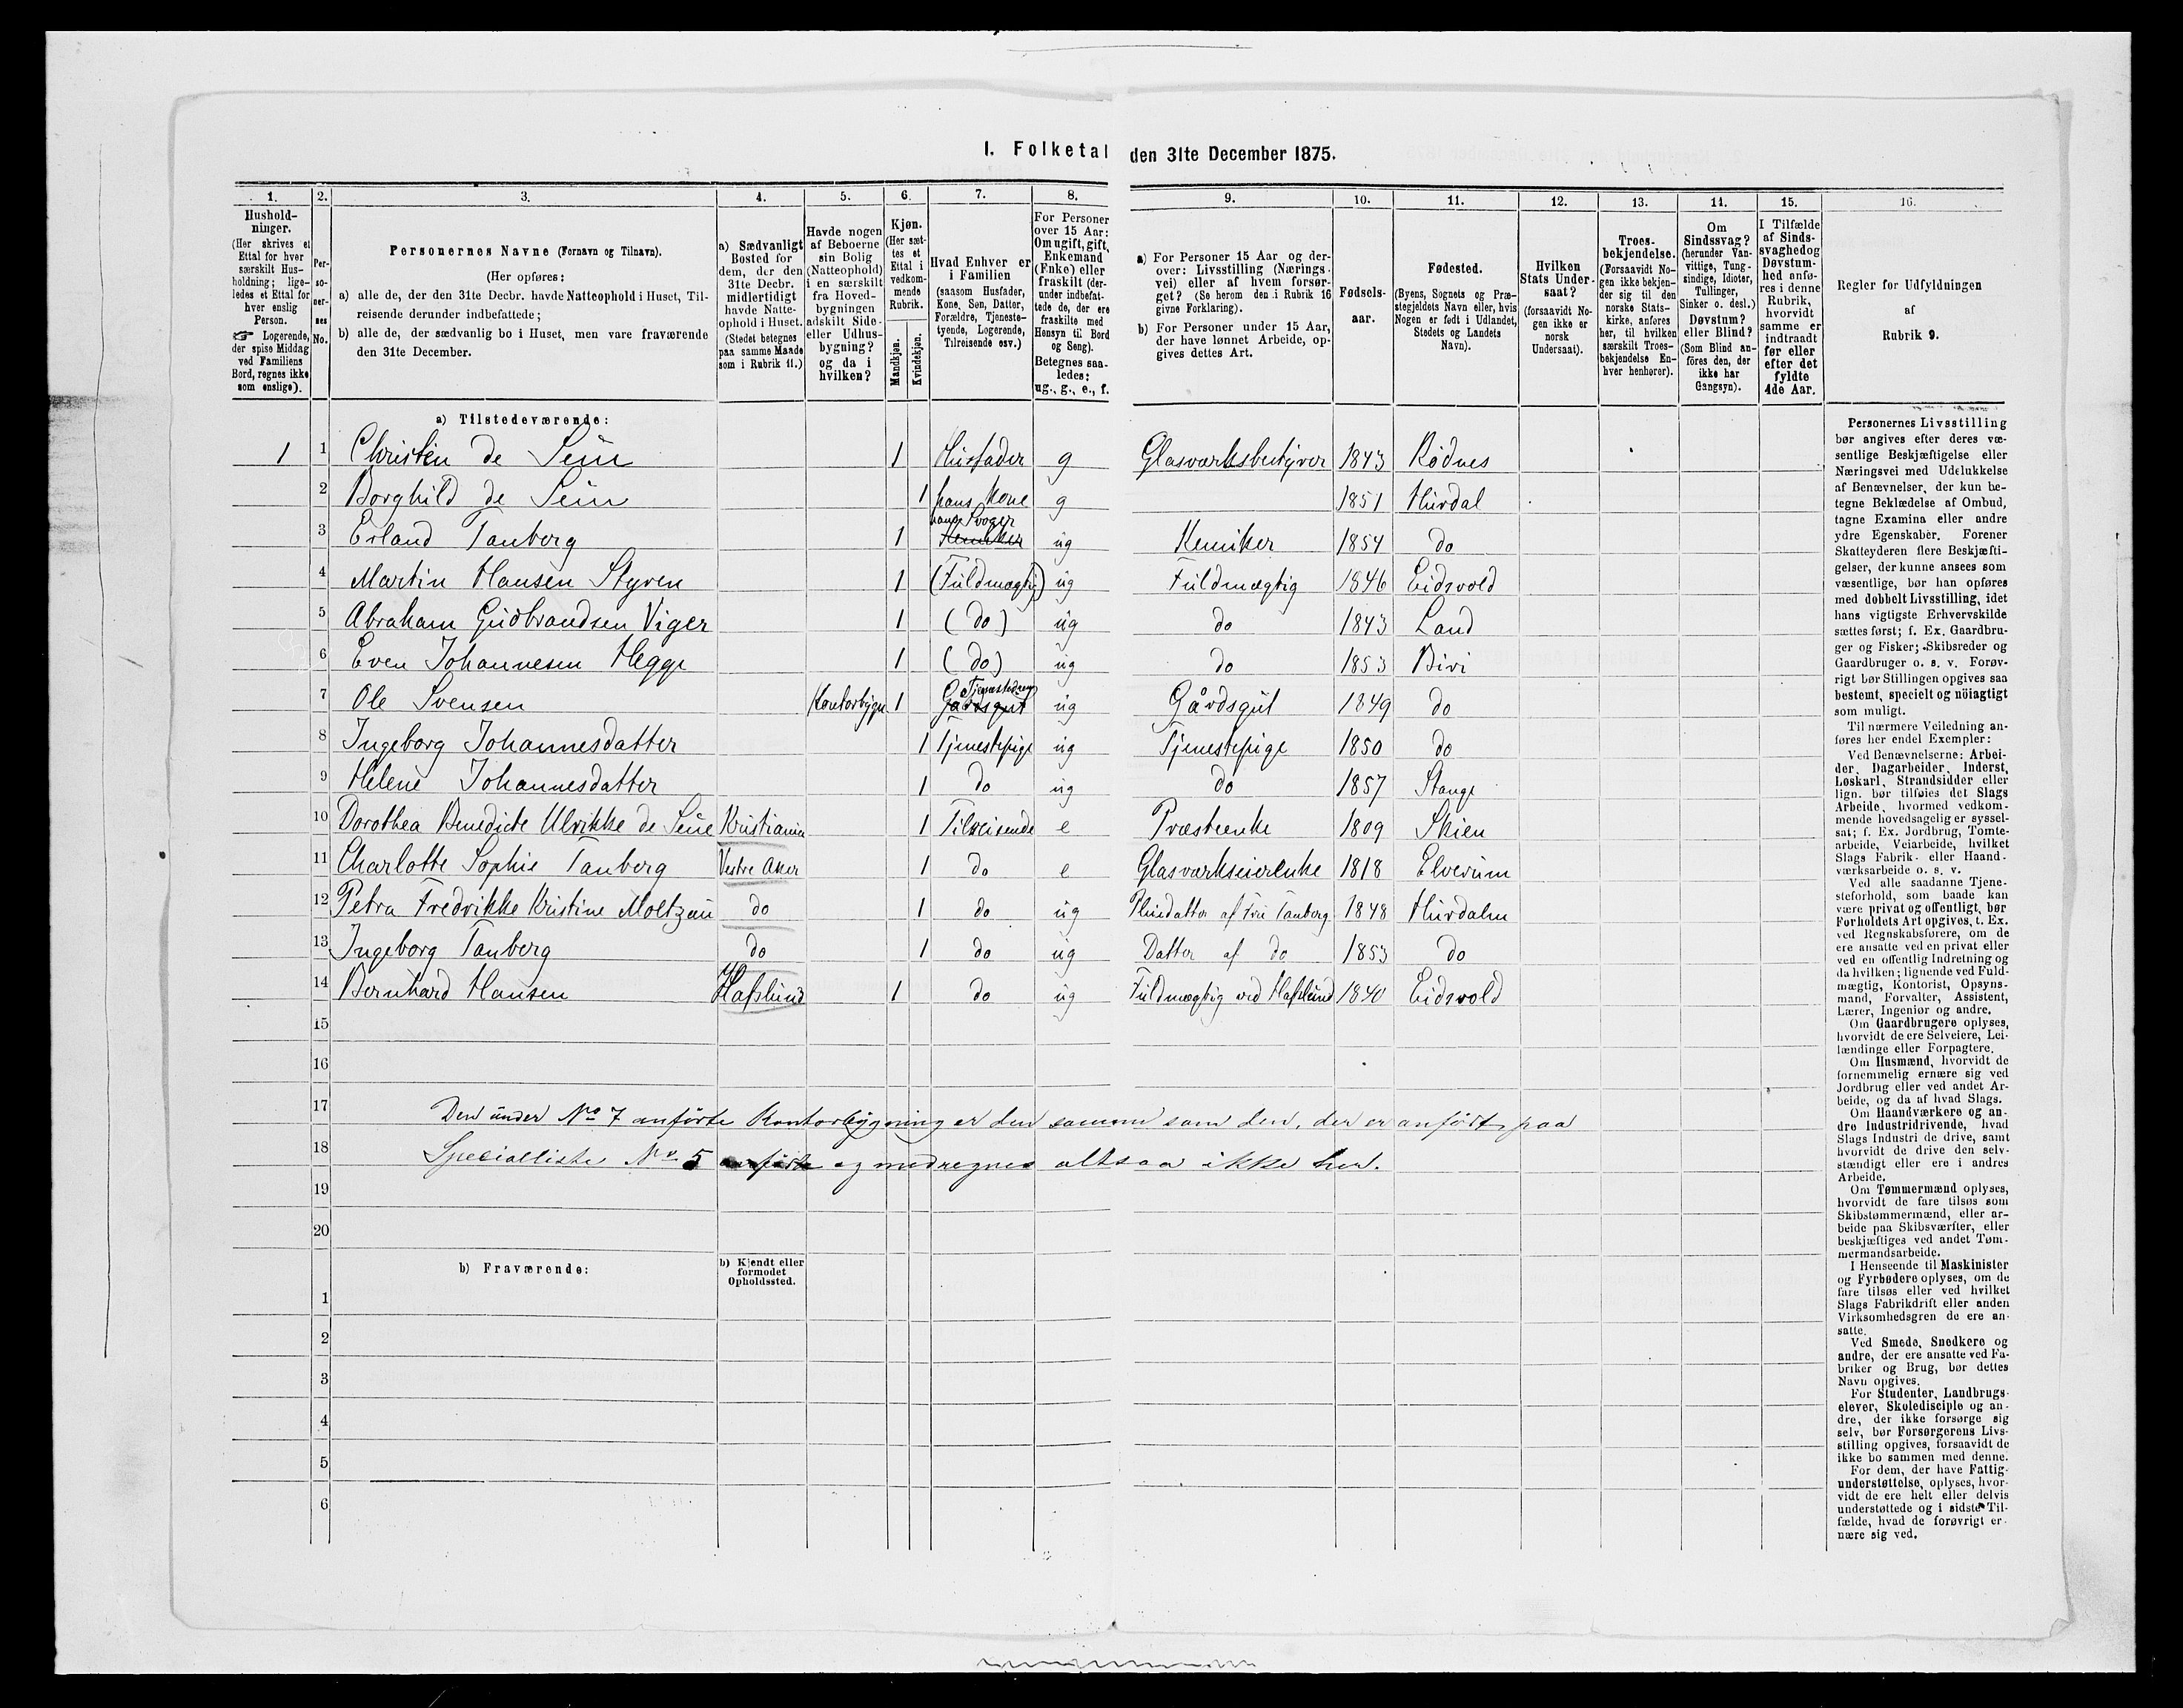 I. Folketal den 31te December 1875.
1. 2. 3. 4. 5. 6. 7. 8. 9. 10. 11. 12. 13. 14. 15. 16.
Hushold-
ninger.
(Her skrives et
Ettal for hver
særskilt Hus-
holdning; lige-
ledes et Ettal for
hver enslig
Person.
☞ Logerende,
der spise Middag
ved Familiens
Bord, regnes ikke
som enslige).
Per-
so-
ner-
nes
No.
Personernes Navne (Fornavn og Tilnavn).
(Her opføres:
a) alle de, der den 31te Decbr. havde Natteophold i Huset, Til-
reisende derunder indbefattede;
b) alle de, der sædvanlig bo i Huset, men vare fraværende
den 31te December.
a) Sædvanligt
Bosted for
dem, der den
31te Decbr.
midlertidigt
havde Natte-
ophold i Huset.
(Stedet betegnes
paa samme Maade
som i Rubrik 11.)
Havde nogen
af Beboerne
sin Bolig
(Natteophold)
i en særskilt
fra Hoved-
bygningen
adskilt Side-
eller Udhus-
bygning?
og da i
hvilken?
Kjøn.
(Her sæt-
tes et
Ettal i
vedkom-
mende
Rubrik.
Mandkjøn.
Kvindekjøn.
Hvad Enhver er
i Familien
(saasom Husfader,
Kone, Søn, Datter,
Forældre, Tjeneste-
tyende, Logerende,
Tilreisende osv.)
For Personer
over 15 Aar:
Om ugift, gift,
Enkemand
(Enke) eller
fraskilt (der-
under indbefat-
tede de, der ere
fraskilte med
Hensyn til Bord
og Seng).
Betegnes saa-
ledes:
ug., g., e., f.
a) For Personer 15 Aar og der-
over: Livsstilling (Nærings-
vei) eller af hvem forsør-
get? (Se herom den i Rubrik 16
givne Forklaring).
b) For Personer under 15 Aar,
der have lønnet Arbeide, op-
gives dettes Art.
Fødsels-
aar.
Fødested.
(Byens, Sognets og Præ-
stegjeldets Navn eller, hvis
Nogen er født i Udlandet,
Stedets og Landets
Navn).
Hvilken
Stats Under-
saat?
(forsaavidt No-
gen ikke er
norsk
Undersaat).
Troes-
bekjendelse.
(Forsaavidt No-
gen ikke bekjen-
der sig til den
norske Stats-
kirke, anføres
her, til hvilken
særskilt Troes-
bekjendelse En-
hver henhører).
Om
Sindssvag?
(herunder Van-
vittige, Tung-
sindige, Idioter,
Tullinger,
Sinker o. desl.)
Døvstum?
eller Blind?
(Som Blind an-
føres den, der
ikke har
Gangsyn).
I Tilfælde
af Sinds-
svaghed og
Døvstum-
hed anfø-
res i denne
Rubrik,
hvorvidt
samme er
indtraadt
før eller
efter det
fyldte
4de Aar.
Regler for Udfyldningen
af
Rubrik 9.
a) Tilstedeværende:
1 1 Christen de Seue 1 Husfader g Glasværksbestyrer 1843 Rødnes
2 Borghild de Seue 1 hans Kone g 1851 Hurdal
hans Svoger
3 Erland Tanberg 1 Kemiker ug Kemiker 1854 do
4 Martin Hansen Styren 1 (Fuldmægtig) ug Fuldmægtig 1846 Eidsvold
5 Abraham Gudbrandsen Viger 1 (do) ug do 1843 Land
6 Even Johannesen Hegge 1 (do) ug do 1853 Biri
Tjenestedreng
7 Ole Svensen Kontorbygn. 1 Gårdsgut ug Gårdsgut 1849 do
8 Ingeborg Johannesdatter 1 Tjenestepige ug Tjenestepige 1850 do
9 Helene Johannesdatter 1 do ug do 1857 Stange
10 Dorothea Benedicte Ulrikke de Seue Kristiania 1 Tilreisende e Præsteenke 1809 Skien
11 Charlotte Sophie Tanberg Vestre Aker 1 do e Glasværkseierenke 1818 Elverum
12 Petra Fredrikke Kristine Moltzau do 1 do ug Pleiedatter af Fru Tanberg 1848 Hurdalen
13 Ingeborg Tanberg do 1 do ug Datter af do 1853 do
14 Bernhard Hansen Hafslund 1 do ug Fuldmægtig ved Hafslund 1840 Eidsvold
15
16
17 Den under No 7 anførte Kontorbygning er den samme som den, der er anført paa
18 Specialliste No 5 og medregnes altsaa ikke her.
19
20
b) Fraværende:
b) Kjendt eller
formodet
Opholdssted.
1
2
3
4
5
6
Personernes Livsstilling
bør angives efter deres væ-
sentlige Beskjæftigelse eller
Næringsvei med Udelukkelse
af Benævnelser, der kun be-
tegne Beklædelse af Ombud,
tagne Examina eller andre
ydre Egenskaber. Forener
Skatteyderen flere Beskjæfti-
gelser, der kunne ansees som
væsentlige, bør han opføres
med dobbelt Livsstilling, idet
hans vigtigste Erhvervskilde
sættes først; f. Ex. Gaardbru-
ger og Fisker; Skibsreder og
Gaardbruger o. s. v. Forøv-
rigt bør Stillingen opgives saa
bestemt, specielt og nöiagtigt
som muligt.
Til nærmere Veiledning an-
føres her endel Exempler:
Ved Benævnelserne: Arbei-
der, Dagarbeider, Inderst,
Løskarl, Strandsidder eller
lign. bør tilføies det Slags
Arbeide, hvormed vedkom-
mende hovedsagelig er syssel-
sat; f. Ex. Jordbrug, Tomte-
arbeide, Veiarbeide, hvilket
Slags Fabrik- eller Haand-
værksarbeide o. s. v.
Ved alle saadanne Tjene-
steforhold, som baade kan
være privat og offentligt, bør
Forholdets Art opgives, t. Ex.
ved Regnskabsførere, om de
ere ansatte ved en privat eller
ved en offentlig Indretning og
da hvilken; lignende ved Fuld-
mægtig, Kontorist, Opsyns-
mand, Forvalter, Assistent,
Lærer, Ingeniør og andre.
Om Gaardbrugere oplyses,
hvorvidt de ere Selveiere, Lei-
lændinge eller Forpagtere.
Om Husmænd, hvorvidt de
fornemmelig ernære sig ved
Jordbrug eller ved andet Ar-
beide, og da af hvad Slags.
Om Haandværkere og an-
dre Industridrivende, hvad
Slags Industri de drive, samt
hvorvidt de drive den selv-
stændigt eller ere i andres
Arbeide.
Om Tømmermænd oplyses,
hvorvidt de fare tilsøs som
Skibstømmermænd, eller ar-
beide paa Skibsværfter, eller
beskjæftiges ved andet Tøm-
mermandsarbeide.
I Henseende til Maskinister
og Fyrbødere oplyses, om de
fare tilsøs eller ved hvilket
Slags Fabrikdrift eller anden
Virksomhedsgren de ere an-
satte.
Ved Smede, Snedkere og
andre, der ere ansatte ved Fa-
briker og Brug, bør dettes
Navn opgives.
For Studenter, Landbrugs-
elever, Skoledisciple og an-
dre, der ikke forsørge sig
selv, bør Forsørgerens Livs-
stilling opgives, forsaavidt de
ikke bo sammen med denne.
For dem, der have Fattig-
understøttelse, oplyses, hvor-
vidt de ere helt eller delvis
understøttede og i sidste Til-
fælde, hvad de forøvrigt er-
nære sig ved.